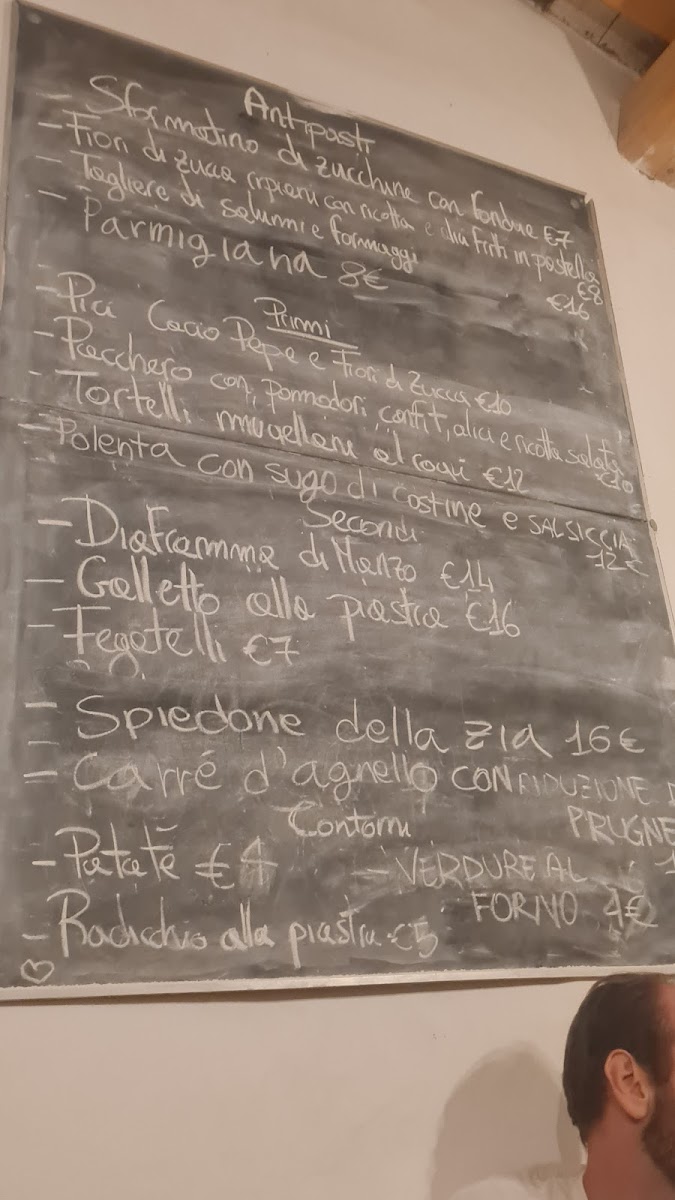 Antipasti
- Sformatino di zucchine con fondue €7
- Fiori di zucca ripieni con ricotta e alici fritti in pastella €8
- Tagliere di salumi e formaggi €16
- Parmigiana 8€
Primi
- Pici Cacio Pepe e Fiori di Zucca €10
- Pacchero con pomodori confit, alici e ricotta salata €10
- Tortelli mugellani al ragù €12
- Polenta con sugo di costine e SALSICCIA 12€
Secondi
- Diaframma di Manzo €14
- Galletto alla piastra €16
- Fegatelli €7
- Spiedone della zia 16€
- Carré d'agnello CON RIDUZIONE
PRUGNE
Contorni
- Patate €4
- VERDURE AL
FORNO 4€
- Radicchio alla piastra €5